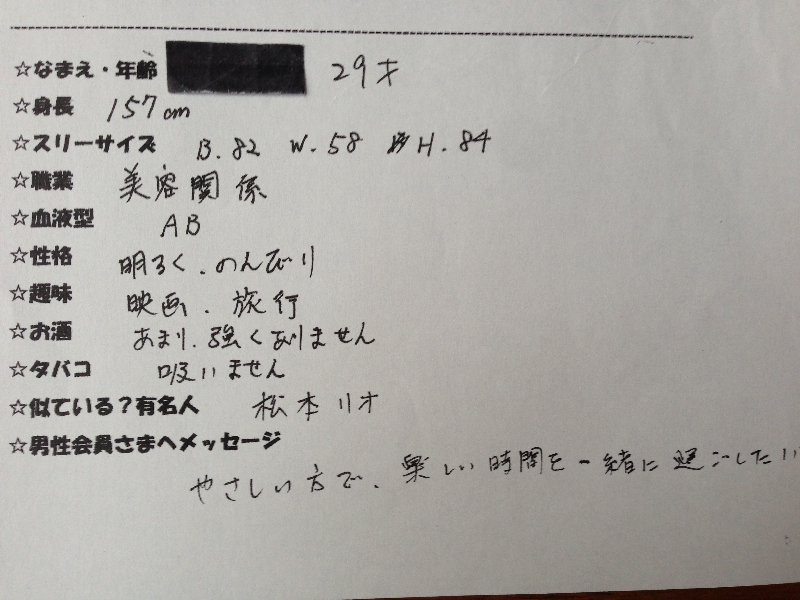 ☆なまえ・年齢 29才
☆身長 157cm
☆スリーサイズ B.82 W.58 H.84
☆職業 美容関係
☆血液型 AB
☆性格 明るく、のんびり
☆趣味 映画、旅行
☆お酒 あまり、強くありません
☆タバコ 吸いません
☆似ている?有名人 松本リオ
☆男性会員さまへメッセージ
やさしい方で、楽しい時間を一緒に過ごしたい